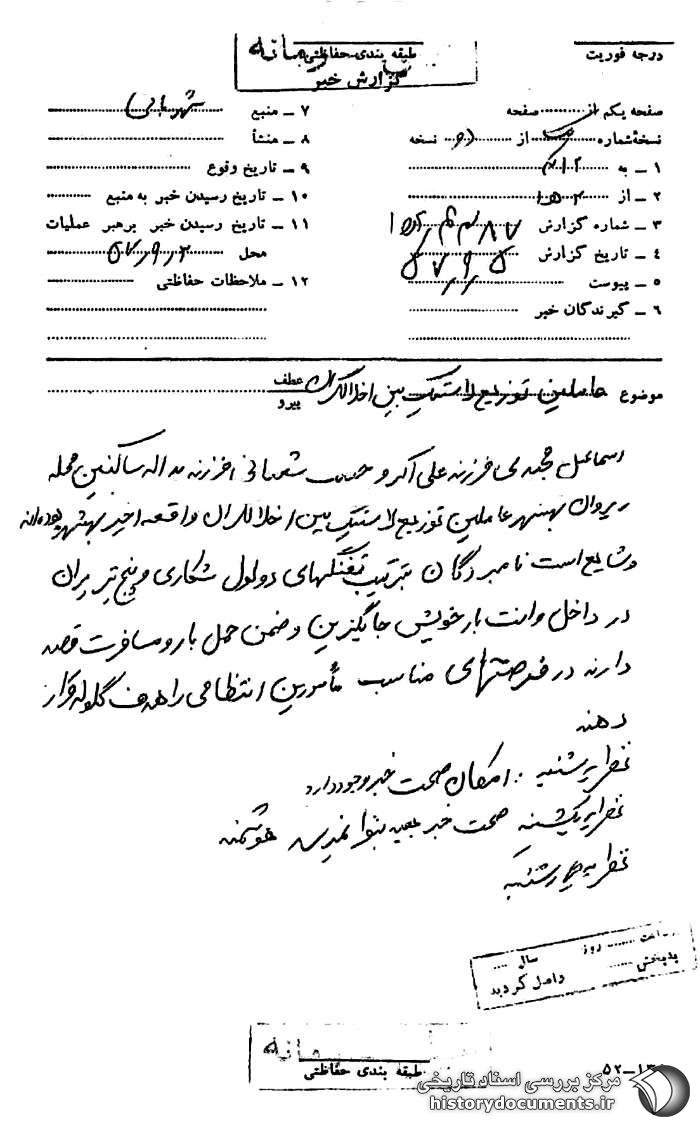 محرمانه
طبقه بندی حفاظتی
گزارش خبر
درجه فوریت
صفحه یکم از صفحه
نسخهٔ شماره از نسخه
۱ – به ۳۱۲
۲ – از
۳ – شماره گزارش
۴ – تاریخ گزارش ۵۷٫۹٫۵
۵ – پیوست
۶ – گیرندگان خبر
۷ – منبع
۸ – منشأ
۹ – تاریخ وقوع
۱۰ – تاریخ رسیدن خبر به منبع
۱۱ – تاریخ رسیدن خبر برهبر عملیات
محل ۵۷٫۹٫۲
۱۲ – ملاحظات حفاظتی
موضوع عاملین توزیع لاستیک بین اخلالگران عطف
پیرو
اسماعیل فرزند علی اکبر و شعبانی فرزند ساکنین محله
بهشهر عاملین توزیع لاستیک بین اخلالگران واقعه اخیر بهشهر بوده‌اند
و شایع است نامبردگان بترتیب تفنگهای دولول شکاری و پنج تیر پران
در داخل وانت بار خویش جاگزین و ضمن حمل بار و مسافرت قصد
دارند در فرصتهای مناسب مأمورین انتظامی را هدف گلوله قرار
دهند
نظریه شنبه : امکان صحت خبر وجود دارد
نظریه یکشنبه صحت خبر بعید بنظر نمیرسد هوشمند
نظریه چهارشنبه
ساعت روز
سال
بدبخش
واصل گردید
محرمانه
طبقه بندی حفاظتی
مرکز بررسی اسناد تاریخی
historydocuments.ir